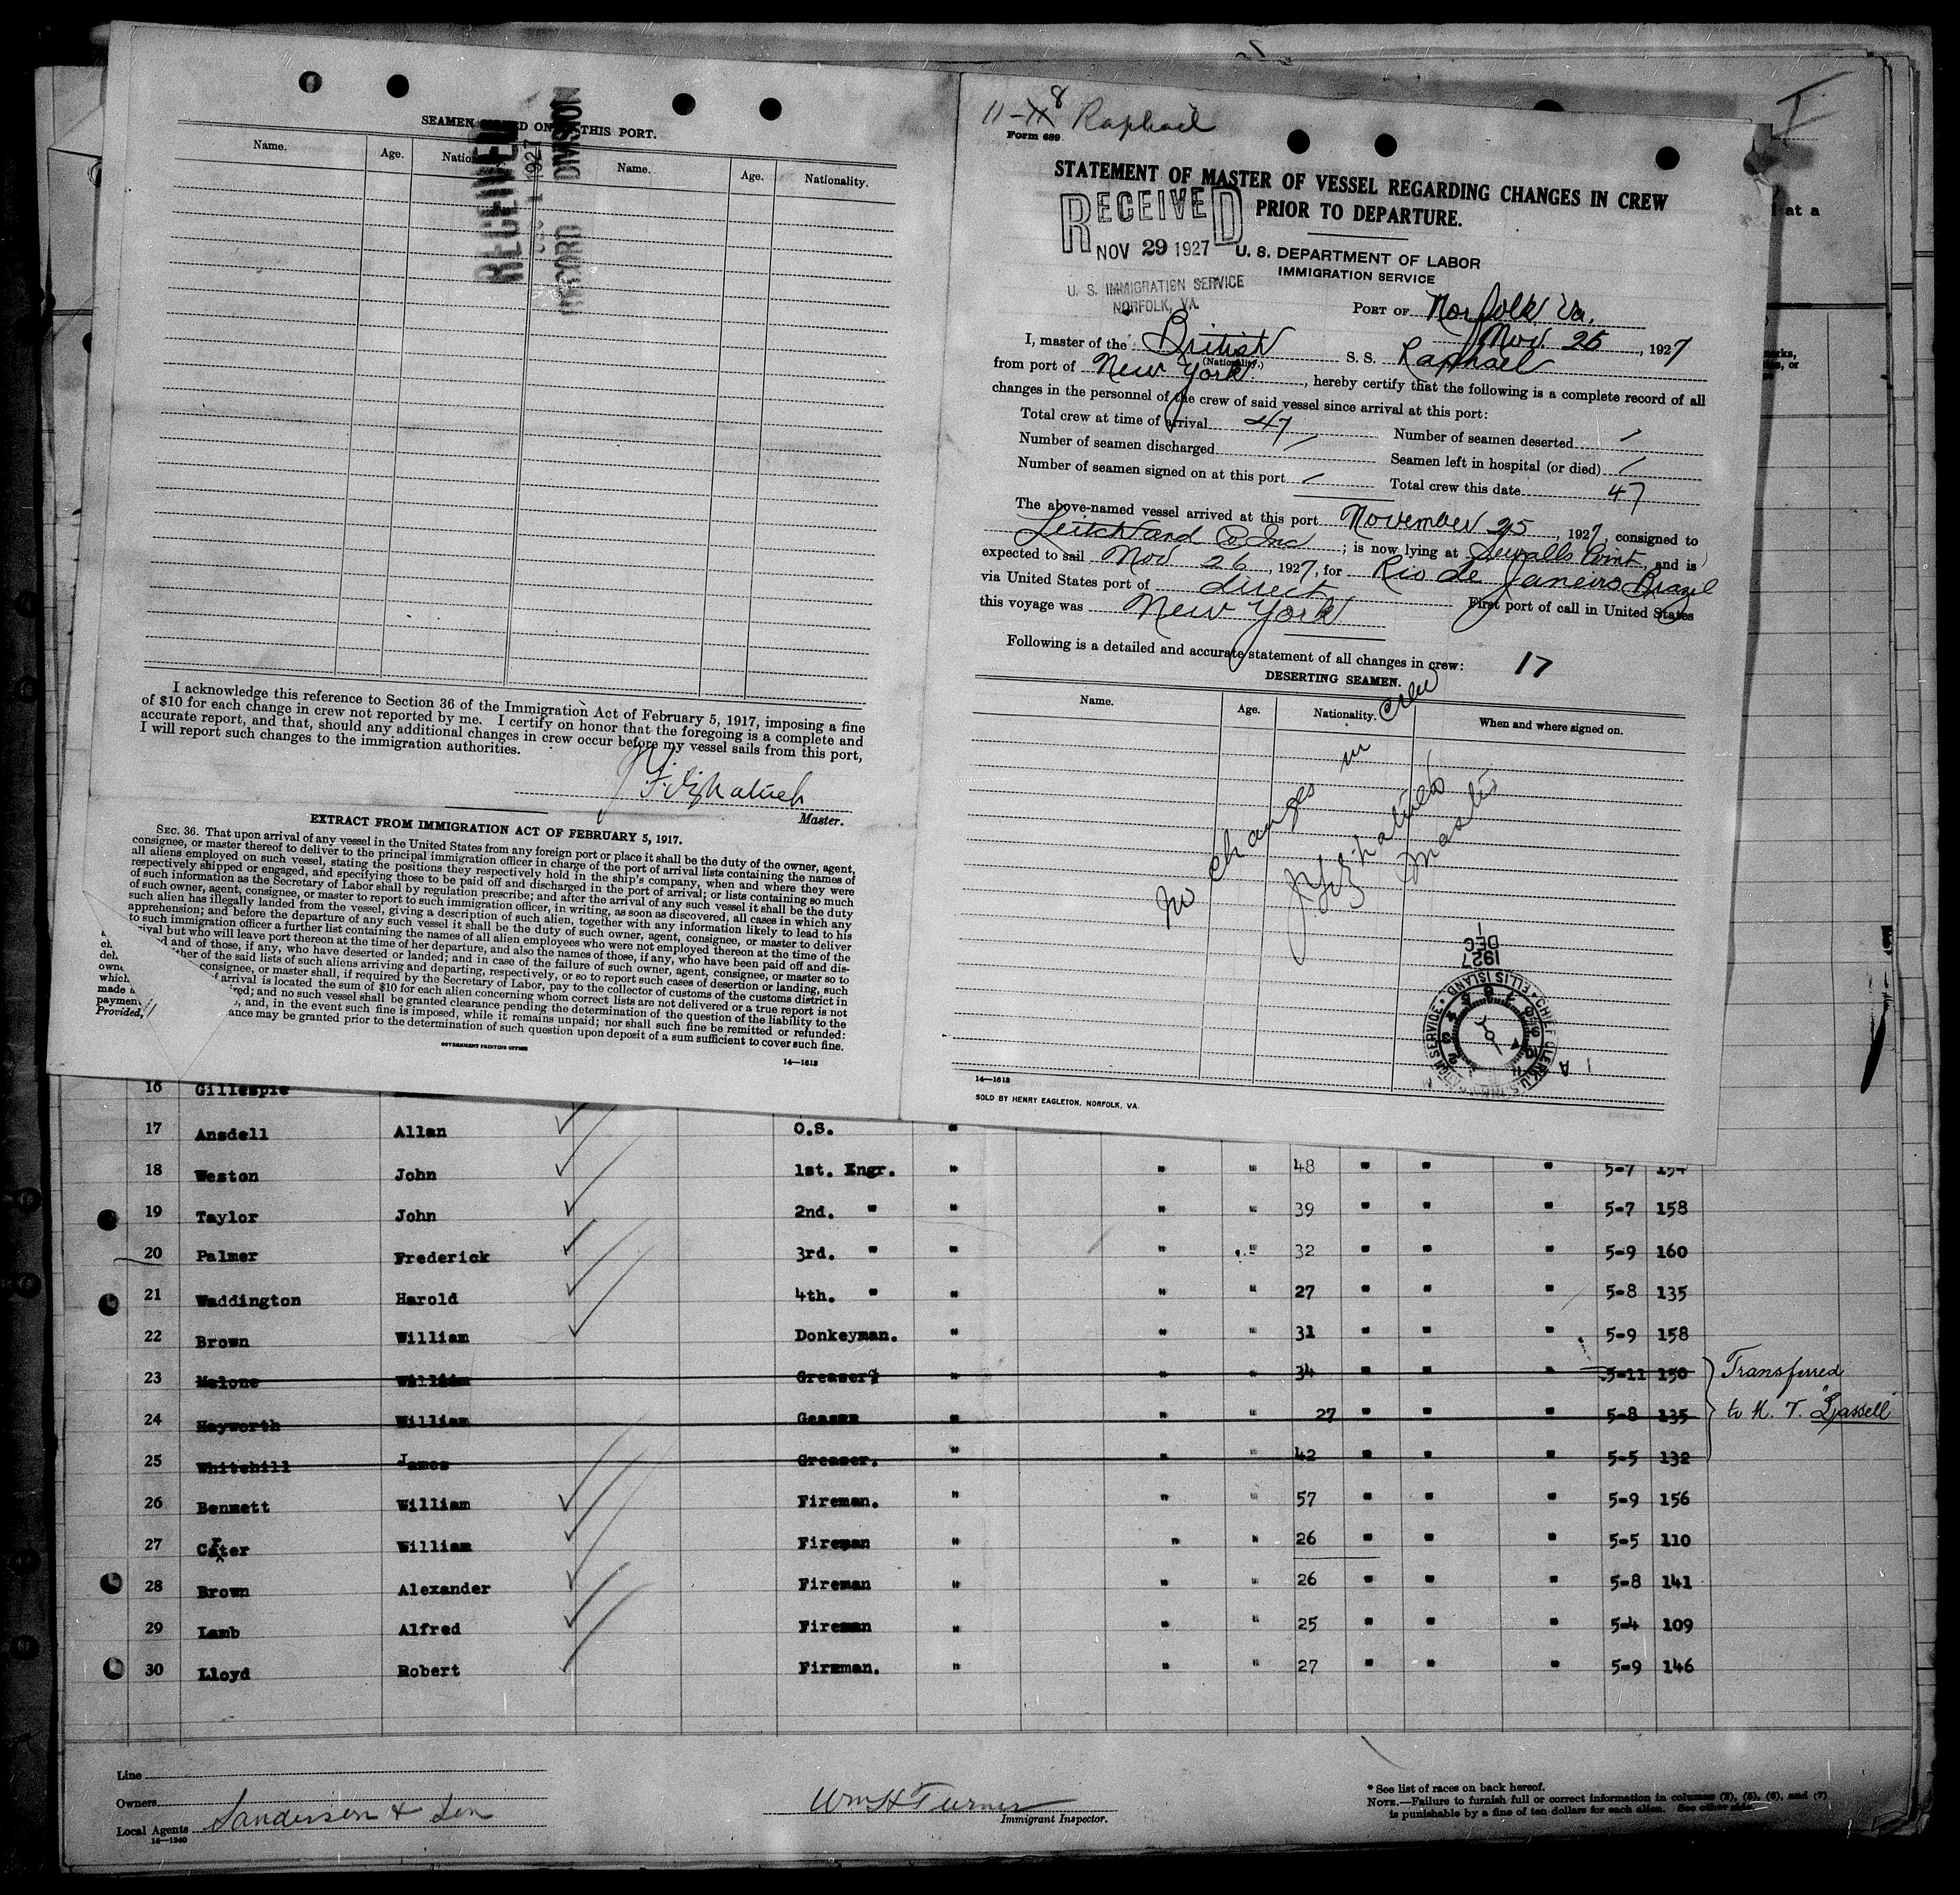 SEAMEN SIGNED ON AT THIS PORT.
Name. Age. Nationality. Name. Age. Nationality.
RECEIVED
DEC 1 1927
RECORD DIVISION
I acknowledge this reference to Section 36 of the Immigration Act of February 5, 1917, imposing a fine
of $10 for each change in crew not reported by me. I certify on honor that the foregoing is a complete and
accurate report, and that, should any additional changes in crew occur before my vessel sails from this port,
I will report such changes to the immigration authorities.
Master.
EXTRACT FROM IMMIGRATION ACT OF FEBRUARY 5, 1917.
SEC. 36. That upon arrival of any vessel in the United States from any foreign port or place it shall be the duty of the owner, agent,
consignee, or master thereof to deliver to the principal immigration officer in charge of the port of arrival lists containing the names of
all aliens employed on such vessel, stating the positions they respectively hold in the ship's company, when and where they were
respectively shipped or engaged, and specifying those to be paid off and discharged in the port of arrival; or lists containing so much
of such information as the Secretary of Labor shall by regulation prescribe; and after the arrival of any such vessel it shall be the duty
of such owner, agent, consignee, or master to report to such immigration officer, in writing, as soon as discovered, all cases in which any
such alien has illegally landed from the vessel, giving a description of such alien, together with any information likely to lead to his
apprehension; and before the departure of any such vessel it shall be the duty of such owner, agent, consignee, or master to deliver
to such immigration officer a further list containing the names of all alien employees who were not employed thereon at the time of the
rival but who will leave port thereon at the time of her departure, and also the names of those, if any, who have been paid off and dis-
ch ed and of those, if any, who have deserted or landed; and in case of the failure of such owner, agent, consignee, or master so to
deli ther of the said lists of such aliens arriving and departing, respectively, or so to report such cases of desertion or landing, such
owne consignee, or master shall, if required by the Secretary of Labor, pay to the collector of customs of the customs district in
which f arrival is located the sum of $10 for each alien concerning whom correct lists are not delivered or a true report is not
made a red; and no such vessel shall be granted clearance pending the determination of the question of the liability to the
payment , and, in the event such fine is imposed, while it remains unpaid; nor shall such fine be remitted or refunded:
Provided, ance may be granted prior to the determination of such question upon deposit of a sum sufficient to cover such fine.
GOVERNMENT PRINTING OFFICE
14—1613
11-8 Raphael
Form 689
STATEMENT OF MASTER OF VESSEL REGARDING CHANGES IN CREW
PRIOR TO DEPARTURE.
RECEIVED
NOV 29 1927
U. S. IMMIGRATION SERVICE
NORFOLK, VA.
U. S. DEPARTMENT OF LABOR
IMMIGRATION SERVICE
PORT OF Norfolk Va.
Nov. 25, 1927
I, master of the British S. S. Raphael
(Nationality.)
from port of New York, hereby certify that the following is a complete record of all
changes in the personnel of the crew of said vessel since arrival at this port:
Total crew at time of arrival 47 Number of seamen deserted /
Number of seamen discharged / Seamen left in hospital (or died) /
Number of seamen signed on at this port / Total crew this date 47
The above-named vessel arrived at this port November 25, 1927, consigned to
Leitch and Co Inc; is now lying at Sewalls Point, and is
expected to sail Nov 26, 1927, for Rio de Janeiro Brazil
via United States port of direct First port of call in United States
this voyage was New York
Following is a detailed and accurate statement of all changes in crew: 17
DESERTING SEAMEN.
Name. Age. Nationality. When and where signed on.
No changes in crew
Master
DEC 1 1927
CHIEF CLERK U.S. IMMIGRATION SERVICE • ELLIS ISLAND
14—1613
SOLD BY HENRY EAGLETON, NORFOLK, VA.
at a
16 Gillespie
17 Ansdell Allan O.S. "
18 Weston John 1st. Engr. " " " 48 " " " 5-7 154
19 Taylor John 2nd. " " " " 39 " " " 5-7 158
20 Palmer Frederick 3rd. " " " " 32 " " " 5-9 160
21 Waddington Harold 4th. " " " " 27 " " " 5-8 135
22 Brown William Donkeyman. " " " 31 " " " 5-9 158
23 Malone William Greaser " " " 34 " " " 5-11 150 Transferred
24 Hayworth William " " " 27 " " " 5-8 135 to H. T. "Lassell"
25 Whitehill James Greaser. " " " 42 " " " 5-5 132
26 Bennett William Fireman. " " " 57 " " " 5-9 156
27 Carter William Fireman " " " 26 " " " 5-5 110
28 Brown Alexander Fireman " " " 26 " " " 5-8 141
29 Lamb Alfred Fireman " " " 25 " " " 5-4 109
30 Lloyd Robert Fireman. " " " 27 " " " 5-9 146
Line
Owners
Local Agents Sanderson & Son
14—1240
Wm H Turner
Immigrant Inspector.
* See list of races on back hereof.
NOTE.—Failure to furnish full or correct information in columns (2), (5), (6), and (7)
is punishable by a fine of ten dollars for each alien. See other side.